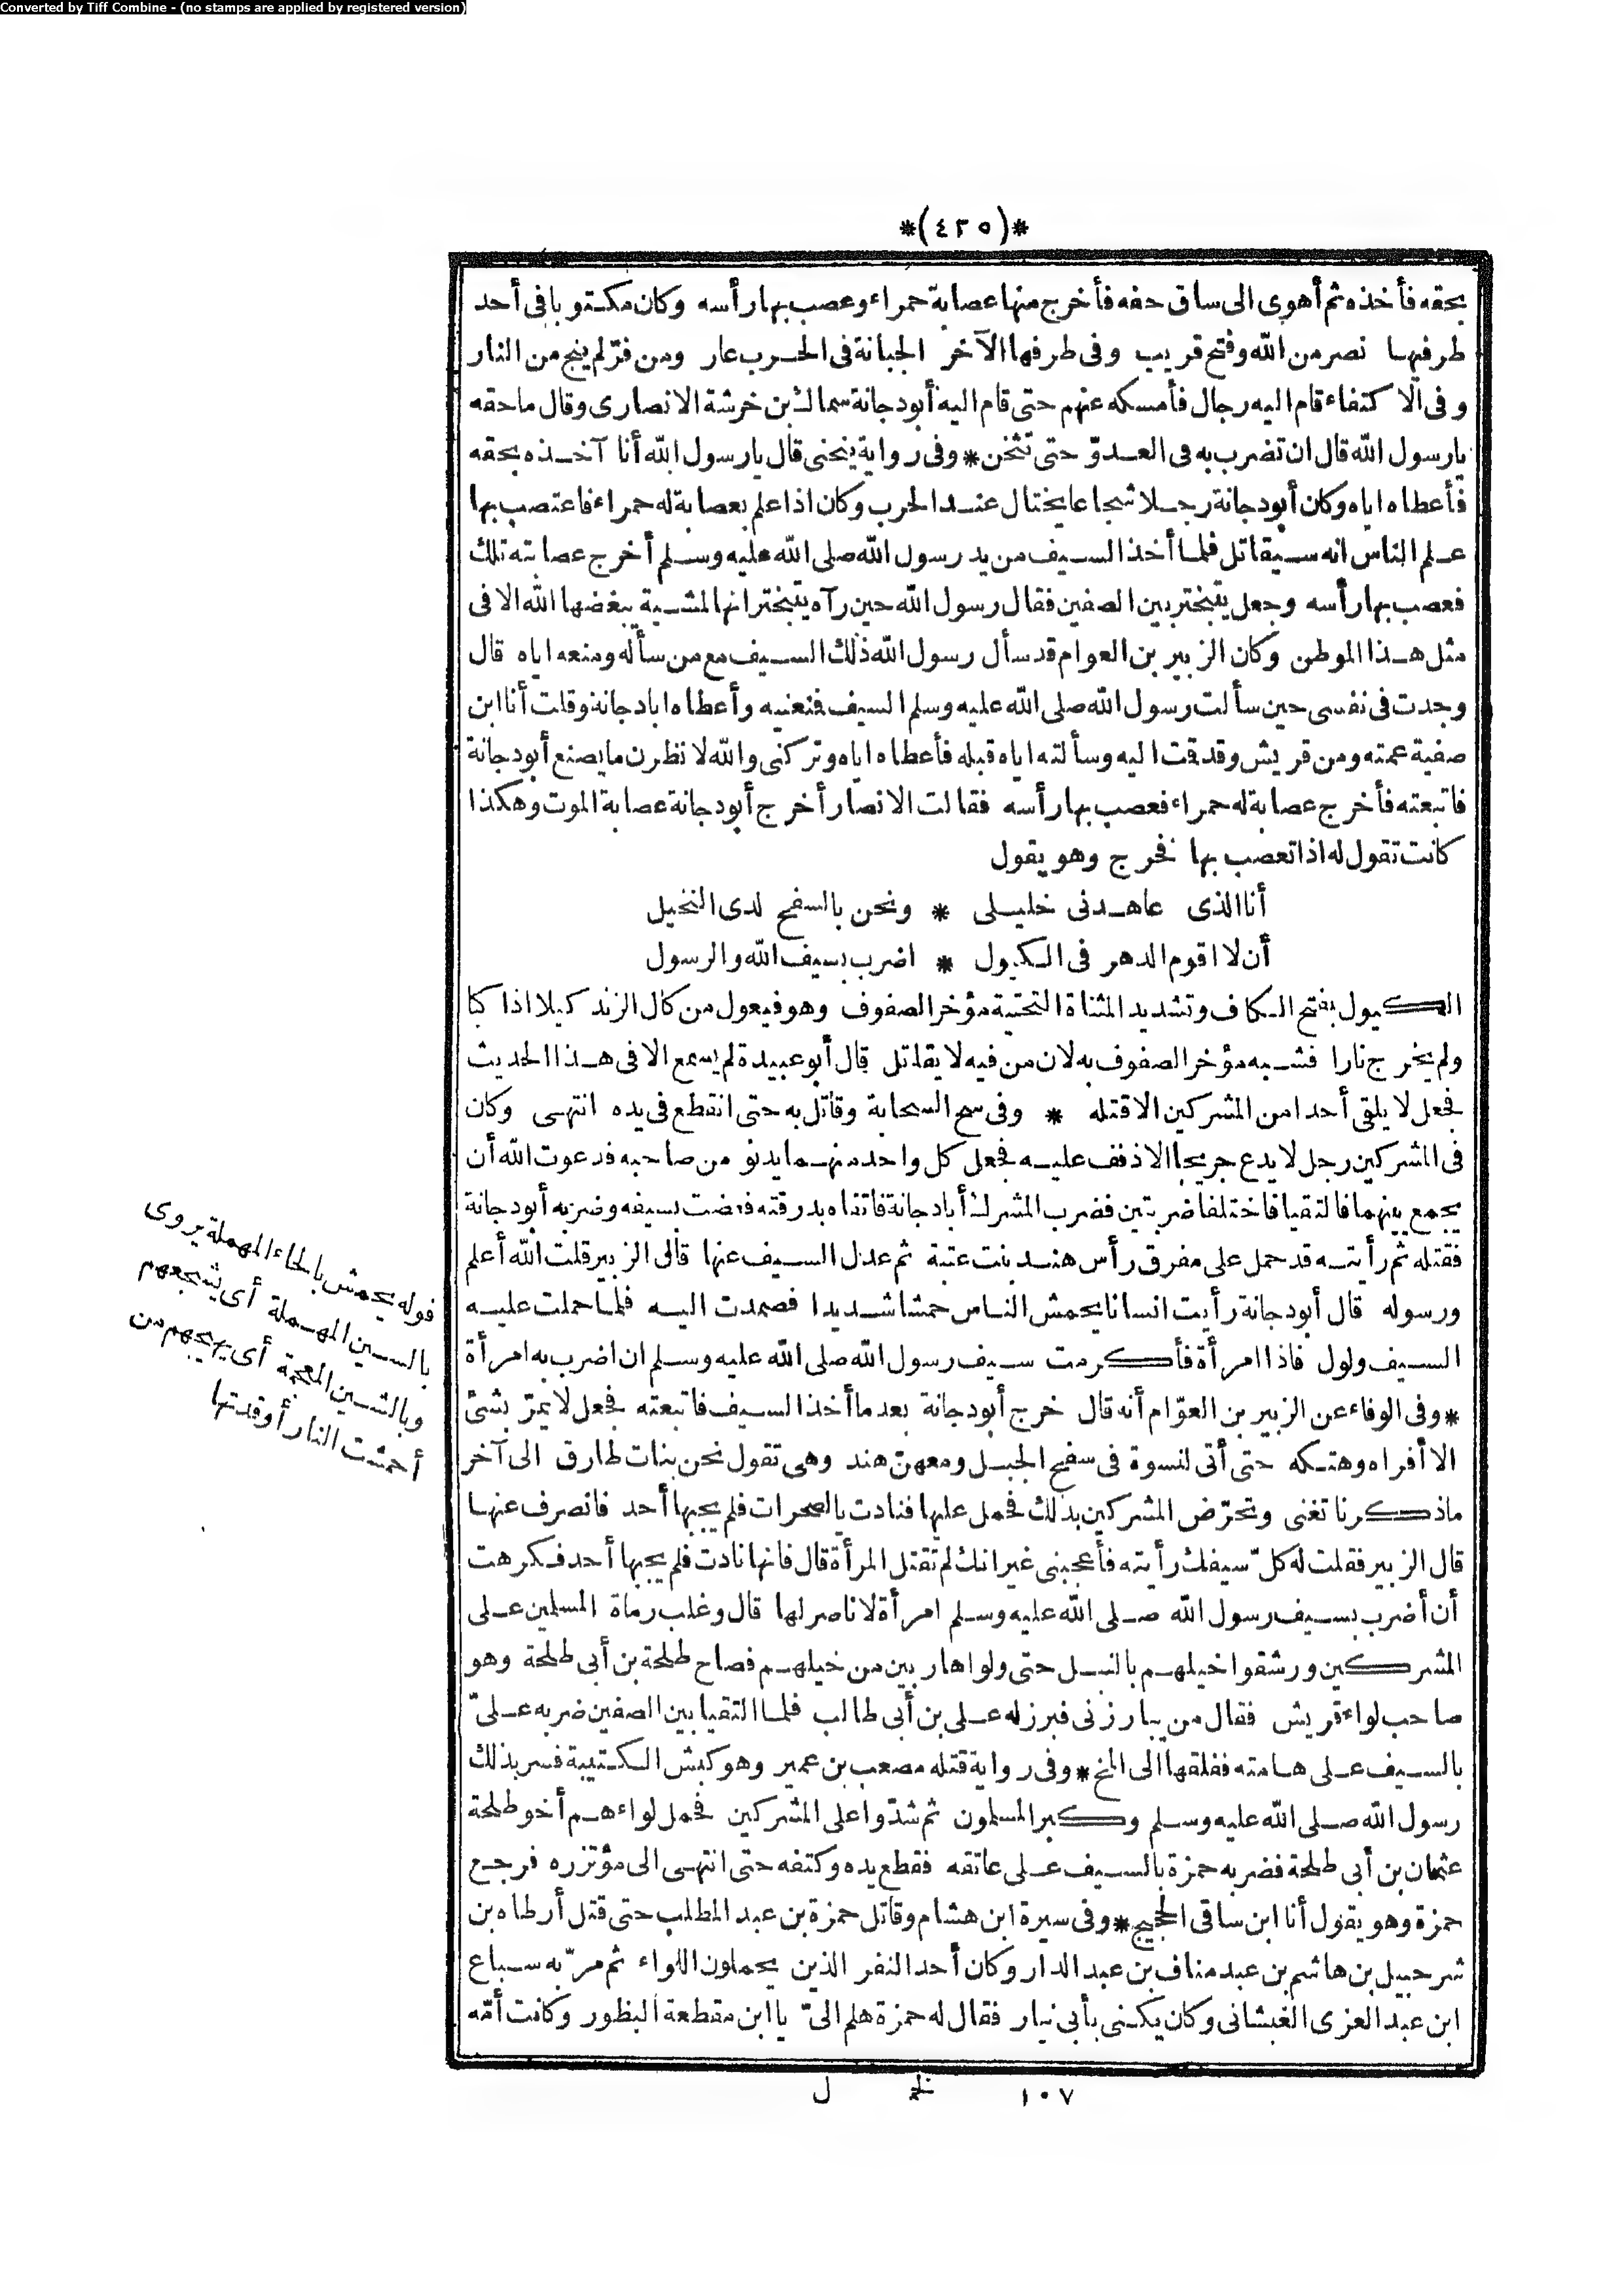 Converted by Tiff Combine - (no stamps are applied by registered version)
*(٤٢٥)*
بحقه فأخذه ثم أهوى الى ساق خفه فأخرج منها عصابة حمراء وعصب بها رأسه وكان مكتوبا فى أحد
طرفيها نصر من الله وفتح قريب وفى طرفها الآخر الجبانة فى الحرب عار ومن فرّ لم ينج من النار
وفى الاكتفاء قام اليه رجال فأمسكه عنهم حتى قام اليه أبو دجانة سماك بن خرشة الانصارى وقال ما حقه
يا رسول الله قال ان تضرب به فى العدوّ حتى تثخن * وفى رواية ينحنى قال يا رسول الله أنا آخذه بحقه
فأعطاه اياه وكان أبو دجانة رجلا شجاعا يختال عند الحرب وكان اذا علم بعصابة له حمراء فاعتصب بها
علم الناس انه سيقاتل فلما أخذ السيف من يد رسول الله صلى الله عليه وسلم أخرج عصابته تلك
فعصب بها رأسه وجعل يتبختر بين الصفين فقال رسول الله حين رآه يتبختر انها لمشية يبغضها الله الا فى
مثل هذا الموطن وكان الزبير بن العوام قد سأل رسول الله ذلك السيف مع من سأله ومنعه اياه قال
وجدت فى نفسى حين سألت رسول الله صلى الله عليه وسلم السيف فمنعنيه وأعطاه ابا دجانة وقلت أنا ابن
صفية عمته ومن قريش وقد قمت اليه وسألته اياه قبله فأعطاه اياه وتركنى والله لانظرن ما يصنع أبو دجانة
فاتبعته فأخرج عصابة له حمراء فعصب بها رأسه فقالت الانصار أخرج أبو دجانة عصابة الموت وهكذا
كانت تقول له اذا تعصب بها فخرج وهو يقول
أنا الذى عاهدنى خليلى * ونحن بالسفح لدى النخيل
أن لا اقوم الدهر فى الكيول * اضرب بسيف الله والرسول
الكيول بفتح الكاف وتشديد المثناة التحتية مؤخر الصفوف وهو فيعول من كال الزند كيلا اذا كبا
ولم يخرج نارا فشبه مؤخر الصفوف به لان من فيه لا يقاتل قال أبو عبيدة لم يسمع الا فى هذا الحديث
فجعل لا يلقى أحدا من المشركين الا قتله * وفى سح السحابة وقاتل به حتى انقطع فى يده انتهى وكان
فى المشركين رجل لا يدع جريحا الا ذفف عليه فجعل كل واحد منهما يدنو من صاحبه فدعوت الله أن
يجمع بينهما فالتقيا فاختلفا ضربتين فضرب المشرك أبا دجانة فاتقاه بدرقته فعضت بسيفه وضربه أبو دجانة
فقتله ثم رأيته قد حمل على مفرق رأس هند بنت عتبة ثم عدل السيف عنها قال الزبير قلت الله أعلم
ورسوله قال أبو دجانة رأيت انسانا يحمش الناس حمشا شديدا فصمدت اليه فلما حملت عليه
السيف ولول فاذا امرأة فأكرمت سيف رسول الله صلى الله عليه وسلم ان اضرب به امرأة
* وفى الوفاء عن الزبير بن العوّام أنه قال خرج أبو دجانة بعد ما أخذ السيف فاتبعته فجعل لا يمرّ بشئ
الا أفراه وهتكه حتى أتى لنسوة فى سفح الجبل ومعهنّ هند وهى تقول نحن بنات طارق الى آخر
ما ذكرنا تغنى وتحرّض المشركين بذلك فحمل عليها فنادت يا لصحرات فلم يجبها أحد فانصرف عنها
قال الزبير فقلت له كلّ سيفك رأيته فأعجبنى غير انك لم تقتل المرأة قال فانها نادت فلم يجبها أحد فكرهت
أن أضرب بسيف رسول الله صلى الله عليه وسلم امرأة لا ناصر لها قال وغلب رماة المسلمين على
المشركين ورشقوا خيلهم بالنبل حتى ولوا هاربين من خيلهم فصاح طلحة بن أبى طلحة وهو
صاحب لواء قريش فقال من يبارزنى فبرز له على بن أبى طالب فلما التقيا بين الصفين ضربه علىّ
بالسيف على هامته ففلقها الى المخ * وفى رواية قتله مصعب بن عمير وهو كبش الكتيبة فسر بذلك
رسول الله صلى الله عليه وسلم وكبر المسلمون ثم شدّوا على المشركين فحمل لواءهم أخو طلحة
عثمان بن أبى طلحة فضربه حمزة بالسيف على عاتقه فقطع يده وكتفه حتى انتهى الى مؤتزره فرجع
حمزة وهو يقول أنا ابن ساقى الحجيج * وفى سيرة ابن هشام وقاتل حمزة بن عبد المطلب حتى قتل أرطاه بن
شرحبيل بن هاشم بن عبد مناف بن عبد الدار وكان أحد النفر الذين يحملون اللواء ثم مرّ به سباع
ابن عبد العزى الغبشانى وكان يكنى بأبى نيار فقال له حمزة هلم الىّ يا ابن مقطعة البظور وكانت أمّه
١٠٧ خ ل
قوله يحمش بالحاء المهملة يروى
بالسين المهملة أى يشجعهم
وبالشين المعجمة أى يهيجهم من
أحمشت النار أوقدتها